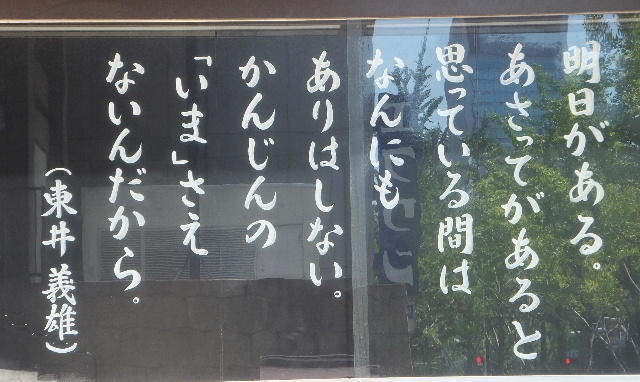 明日がある。
あさってがあると
思っている間は
なんにも
ありはしない。
かんじんの
「いま」さえ
ないんだから。
（東井義雄）